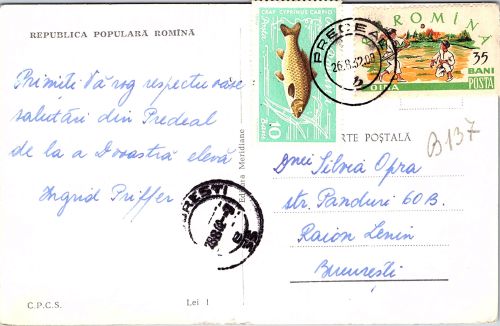 REPUBLICA POPULARĂ ROMÎNĂ
Primiți Vă rog respectuoase
salutări din Predeal
de la a Dvoastră elevă
Ingrid Priffer.
C.P.C.S.
Lei 1
Editura Meridiane
CRAP CYPRINUS CARPIO
Posta
10
Bani
PREDEAL
26.8.62.09
ROMÎNA
35
BANI
POSTA
OINA
CARTE POȘTALĂ
B137
Dnei Silvia Opra
str. Panduri 60B.
Raion Lenin
București